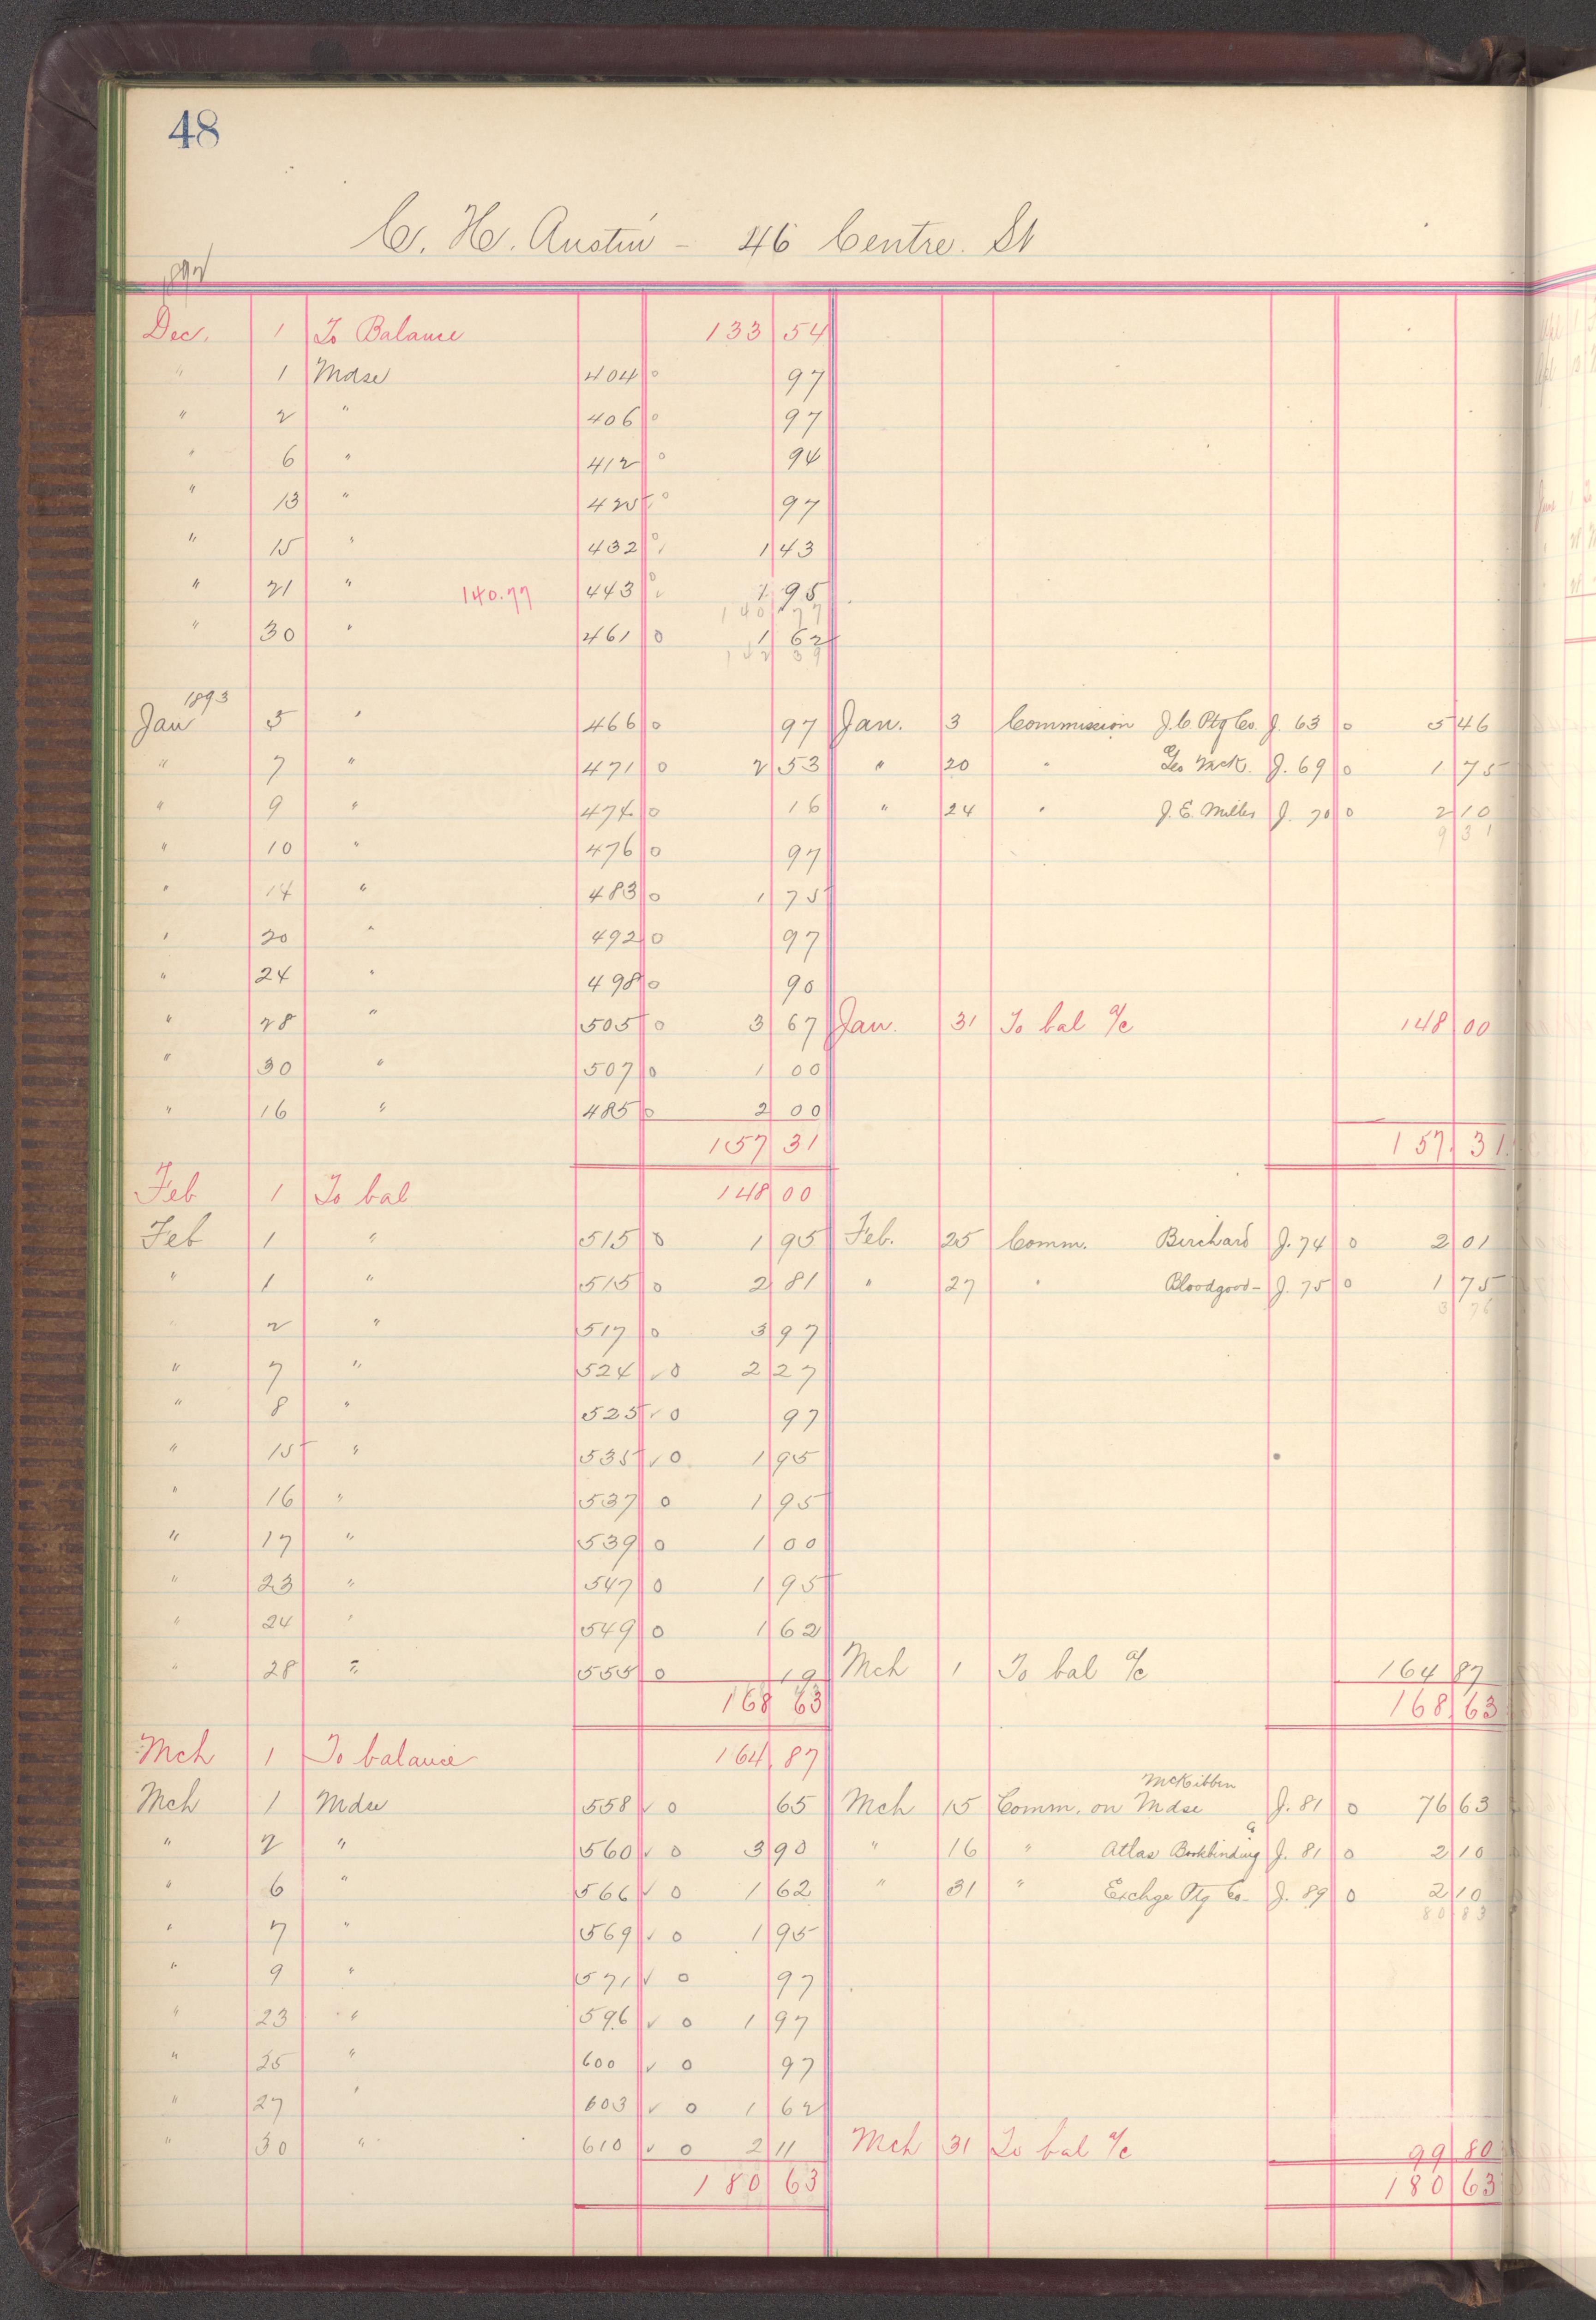 48
C. H. Austin - 46 Centre. St
1892
Dec. 1 To Balance 133 54
" 1 Mdse 404 o 97
" 2 " 406 o 97
" 6 " 412 o 94
" 13 " 425 o 97
" 15 " 432 o 1 43
" 21 " 140.77 443 o 1 95
140 77
" 30 " 461 o 1 62
142 39
1893
Jan 5 " 466 o 97 Jan. 3 Commission J. C. Ptg Co. J. 63 o 5 46
" 7 " 471 o 2 53 " 20 " Geo Mack. J. 69 o 1 75
" 9 " 474 o 16 " 24 " J. E. Miller J. 70 o 2 10
9 31
" 10 " 476 o 97
" 14 " 483 o 1 75
" 20 " 492 o 97
" 24 " 498 o 90
" 28 " 505 o 3 67 Jan. 31 To bal a/c 148 00
" 30 " 507 o 1 00
" 16 " 485 o 2 00
157 31 157 31
Feb 1 To bal 148 00
Feb 1 " 515 o 1 95 Feb. 25 Comm. Birchard J. 74 o 2 01
" 1 " 515 o 2 81 " 27 " Bloodgood - J. 75 o 1 75
3 76
" 2 " 517 o 3 97
" 7 " 524 ✓ o 2 27
" 8 " 525 ✓ o 97
" 15 " 535 ✓ o 1 95
" 16 " 537 o 1 95
" 17 " 539 o 1 00
" 23 " 547 o 1 95
" 24 " 549 o 1 62
" 28 " 555 o 19 Mch 1 To bal a/c 164 87
168 63 168 63
Mch 1 To balance 164 87
McKibbin
Mch 1 Mdse 558 ✓ o 65 Mch 15 Comm. on Mdse J. 81 o 76 63
" 2 " 560 ✓ o 3 90 " 16 " Atlas Bookbinding Co J. 81 o 2 10
" 6 " 566 ✓ o 1 62 " 31 " Exchge Ptg Co - J. 89 o 2 10
80 83
" 7 " 569 ✓ o 1 95
" 9 " 571 ✓ o 97
" 23 " 596 ✓ o 1 97
" 25 " 600 ✓ o 97
" 27 " 603 ✓ o 1 62
" 30 " 610 ✓ o 2 11 Mch 31 To bal a/c 99 80
180 63 180 63